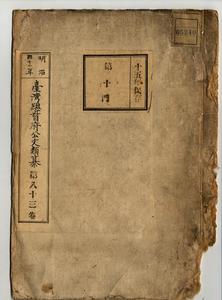 明治
四十二年
臺灣總督府公文類纂
第八十三卷
十五年保存
第十門